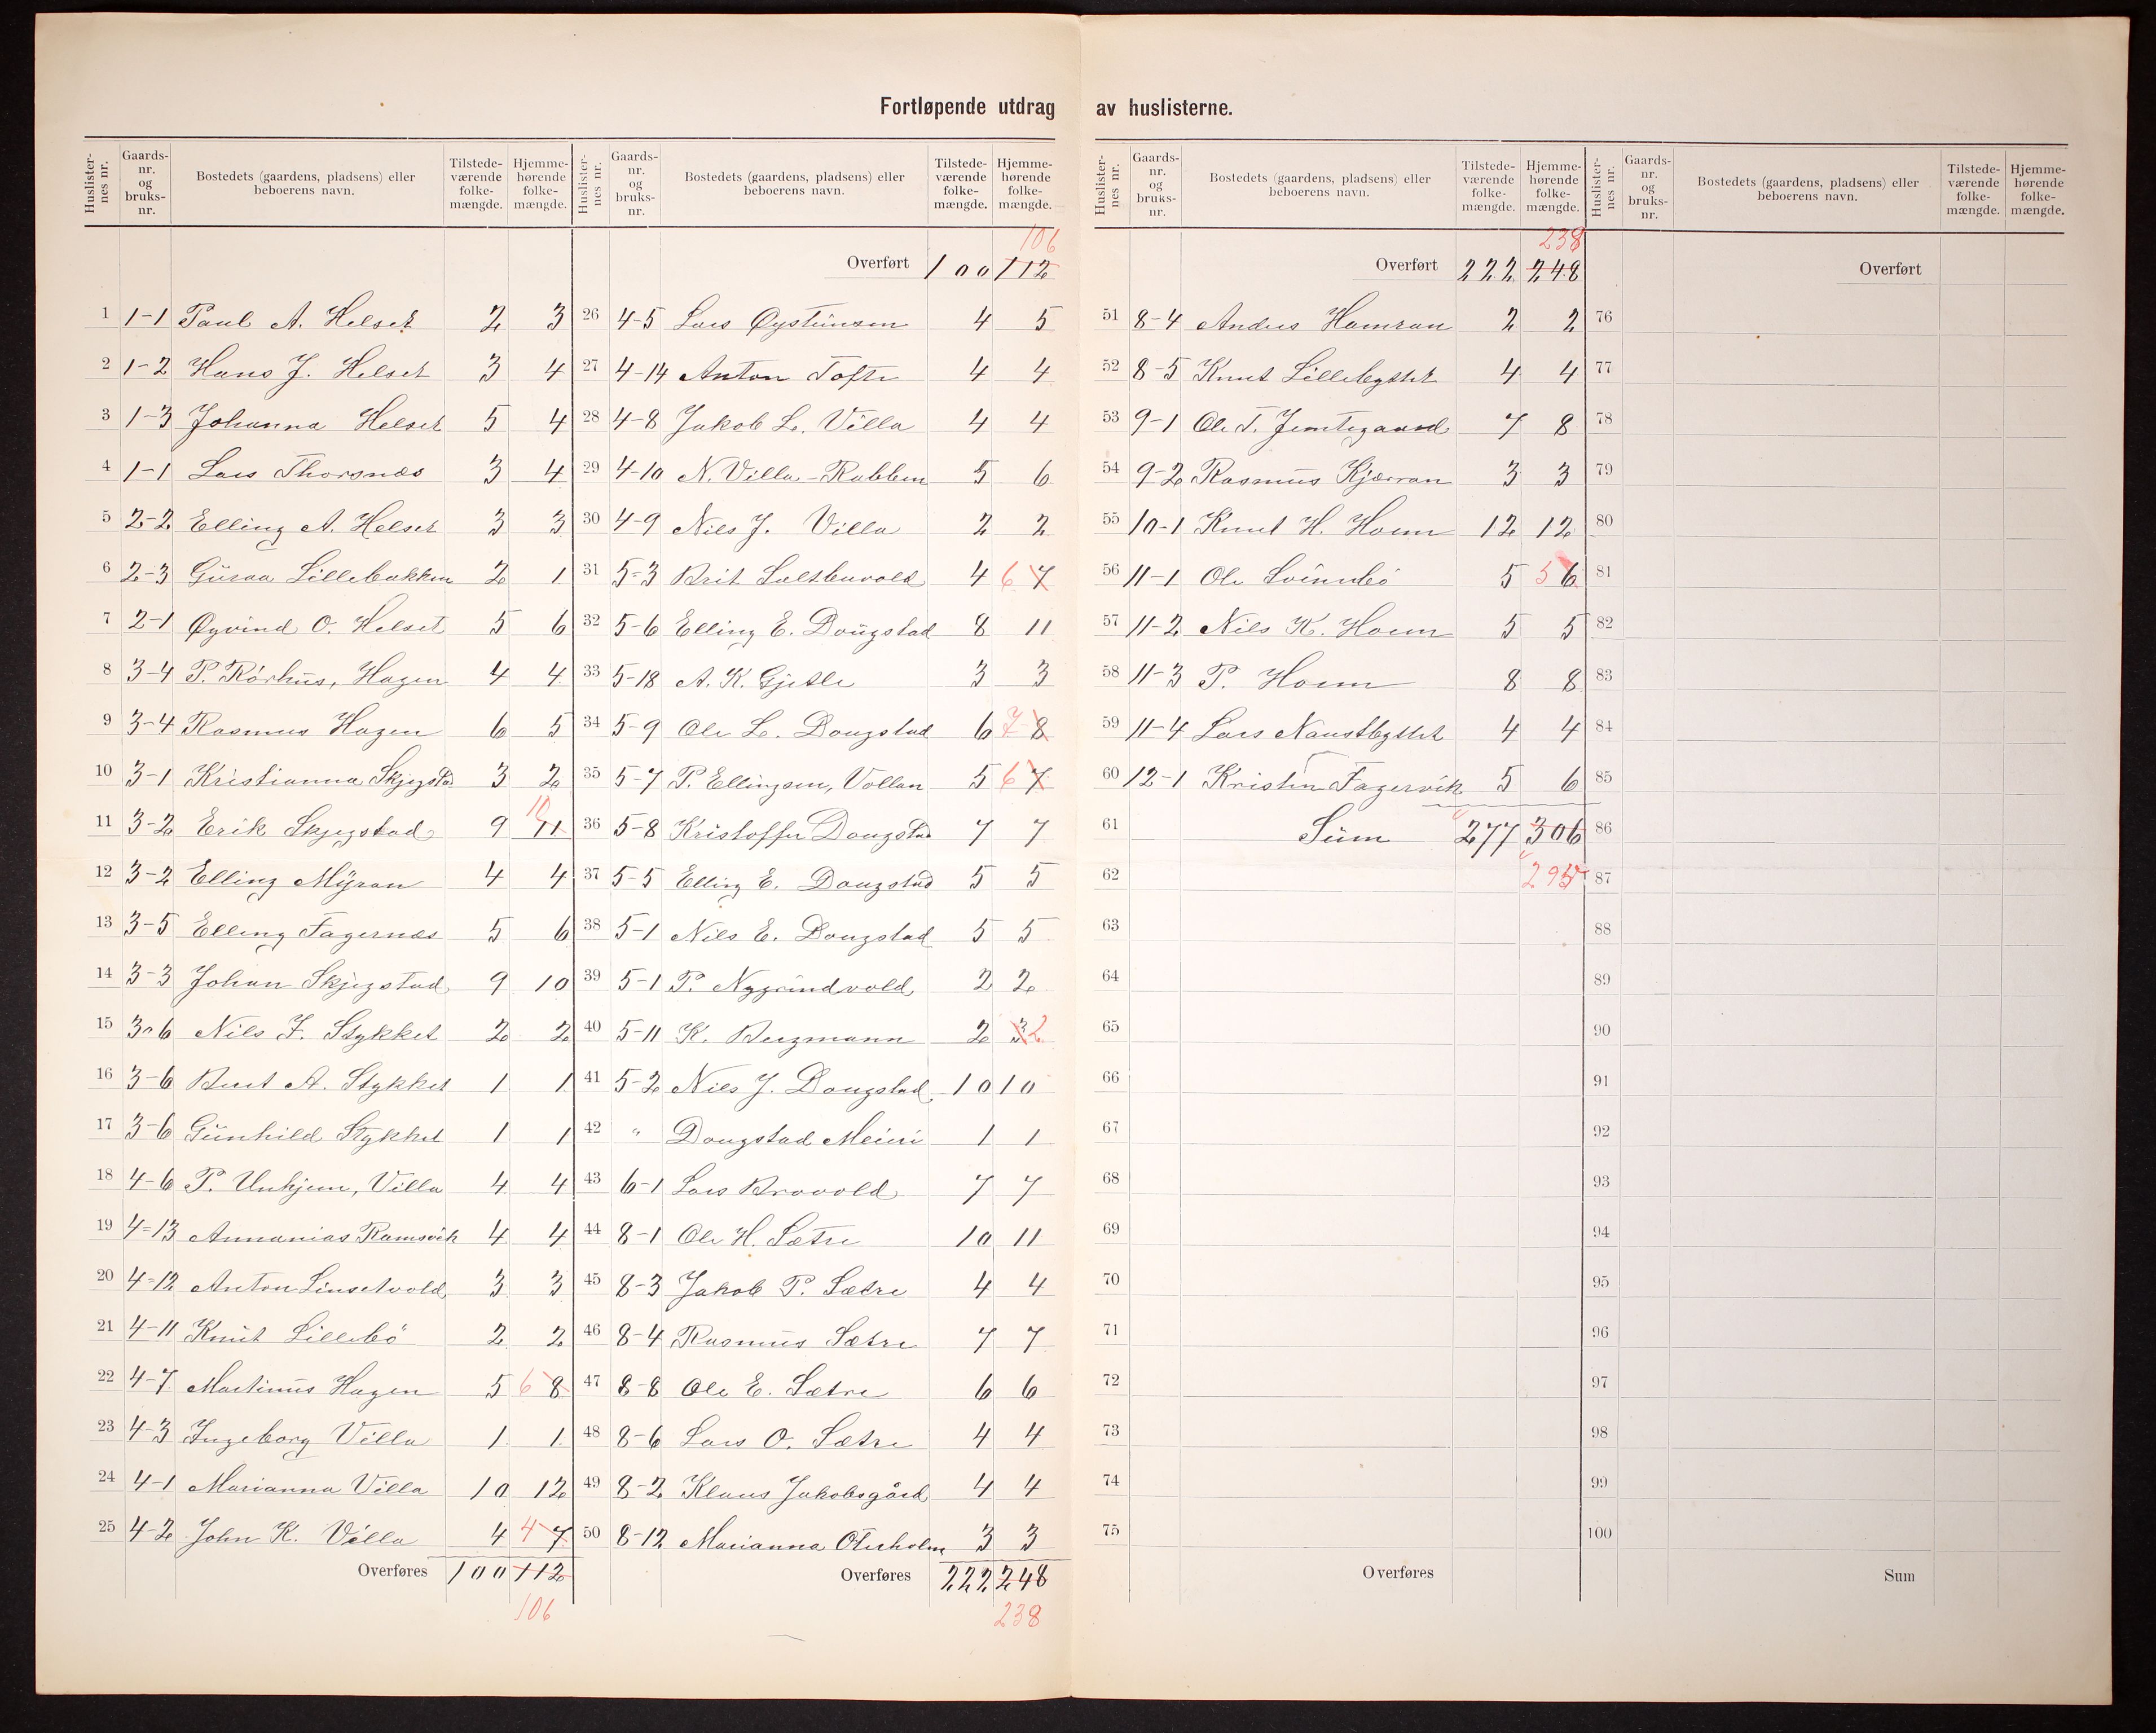 Fortløpende utdrag av huslisterne.
Huslisternes nr. Gaards-nr. og bruks-nr. Bostedets (gaardens, pladsens) eller beboerens navn. Tilstede-værende folke-mængde. Hjemme-hørende folke-mængde.
1 1-1 Paul A. Helset 2 3
2 1-2 Hans J. Helset 3 4
3 1-3 Johanna Helset 5 4
4 1-1 Lars Thorsnæs 3 4
5 2-2 Elling A. Helset 3 3
6 2-3 Guraa Lillebakken 2 1
7 2-1 Øyvind O. Helset 5 6
8 3-4 P. Rörhus, Hagen 4 4
9 3-4 Rasmus Hagen 6 5
10 3-1 Kristianna Skjegstad 3 2
11 3-2 Erik Skjegstad 9 11 10
12 3-2 Elling Myran 4 4
13 3-5 Elling Fagernæs 5 6
14 3-3 Johan Skjegstad 9 10
15 3-6 Nils J. Stykket 2 2
16 3-6 Berit A. Stykket 1 1
17 3-6 Gunhild Stykket 1 1
18 4-6 P. Unhjem, Villa 4 4
19 4-13 Annanias Ramsvik 4 4
20 4-12 Anton Linsetvold 3 3
21 4-11 Knut Lillebö 2 2
22 4-7 Martinus Hagen 5 6 8
23 4-3 Ingeborg Villa 1 1
24 4-1 Marianna Villa 10 12
25 4-2 John K. Villa 4 4 7
Overføres 100 112
106
Huslisternes nr. Gaards-nr. og bruks-nr. Bostedets (gaardens, pladsens) eller beboerens navn. Tilstede-værende folke-mængde. Hjemme-hørende folke-mængde.
106
Overført 100 112
26 4-5 Lars Øysteinsen 4 5
27 4-14 Anton Tofte 4 4
28 4-8 Jakob L. Villa 4 4
29 4-10 N. Villa-Rabben 5 6
30 4-9 Nils J. Villa 2 2
31 5-3 Brit Saltbuvold 4 6 7
32 5-6 Elling E. Dougstad 8 11
33 5-18 A. K. Gjetle 3 3
34 5-9 Ole L. Dougstad 6 7 8
35 5-7 P. Ellingsen, Vollan 5 6 7
36 5-8 Kristoffer Dougstad 7 7
37 5-5 Elling E. Dougstad 5 5
38 5-1 Nils E. Dougstad 5 5
39 5-1 P. Nygrindvold 2 2
40 5-11 K. Bergmann 2 3 2
41 5-2 Nils J. Dougstad 10 10
42 " Dougstad Meieri 1 1
43 6-1 Lars Brovold 7 7
44 8-1 Ole H. Sætre 10 11
45 8-3 Jakob P. Sætre 4 4
46 8-4 Rasmus Sætre 7 7
47 8-8 Ole E. Sætre 6 6
48 8-6 Lars O. Sætre 4 4
49 8-2 Klaus Jakobsgård 4 4
50 8-12 Marianna Oterholm 3 3
Overføres 222 248
238
Huslisternes nr. Gaards-nr. og bruks-nr. Bostedets (gaardens, pladsens) eller beboerens navn. Tilstede-værende folke-mængde. Hjemme-hørende folke-mængde.
238
Overført 222 248
51 8-4 Anders Hamran 2 2
52 8-5 Knut Lillebyttet 4 4
53 9-1 Ole T. Jemtegaard 7 8
54 9-2 Rasmus Kjærran 3 3
55 10-1 Knut H. Hoem 12 12
56 11-1 Ole Svinnbö 5 5 6
57 11-2 Nils K. Hoem 5 5
58 11-3 P. Hoem 8 8
59 11-4 Lars Naustbyttet 4 4
60 12-1 Kristen Fagervik 5 6
61 Sum 277 306
62 295
63
64
65
66
67
68
69
70
71
72
73
74
75
Overføres
Huslisternes nr. Gaards-nr. og bruks-nr. Bostedets (gaardens, pladsens) eller beboerens navn. Tilstede-værende folke-mængde. Hjemme-hørende folke-mængde.
Overført
76
77
78
79
80
81
82
83
84
85
86
87
88
89
90
91
92
93
94
95
96
97
98
99
100
Sum